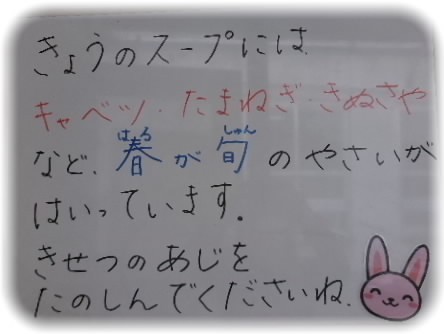 きょうのスープには
キャベツ・たまねぎ・きぬさや
など、春はるが旬しゅんのやさいが
はいっています。
きせつのあじを
たのしんでくださいね.